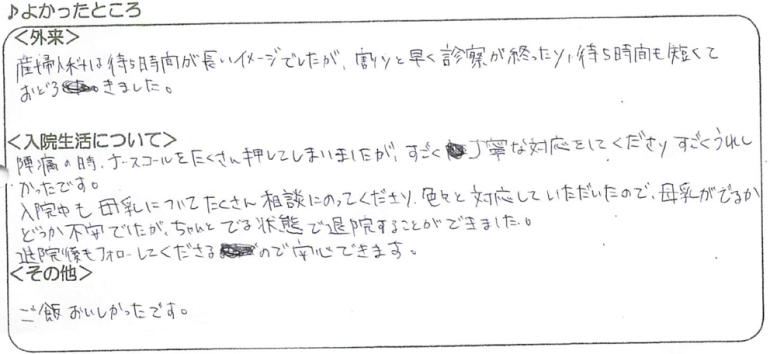 ♪よかったところ
<外来>
産婦人科は待ち時間が長いイメージでしたが、割りと早く診察が終ったり、待ち時間も短くて
おどろきました。
<入院生活について>
陣痛の時、ナースコールをたくさん押してしまいましたが、すごく丁寧な対応をしてくださりすごくうれし
かったです。
入院中も母乳についてたくさん相談にのってくださり、色々と対応していただいたので、母乳がでるか
どうか不安でしたが、ちゃんとでる状態で退院することができました。
退院後もフォローしてくださるので安心できます。
<その他>
ご飯おいしかったです。